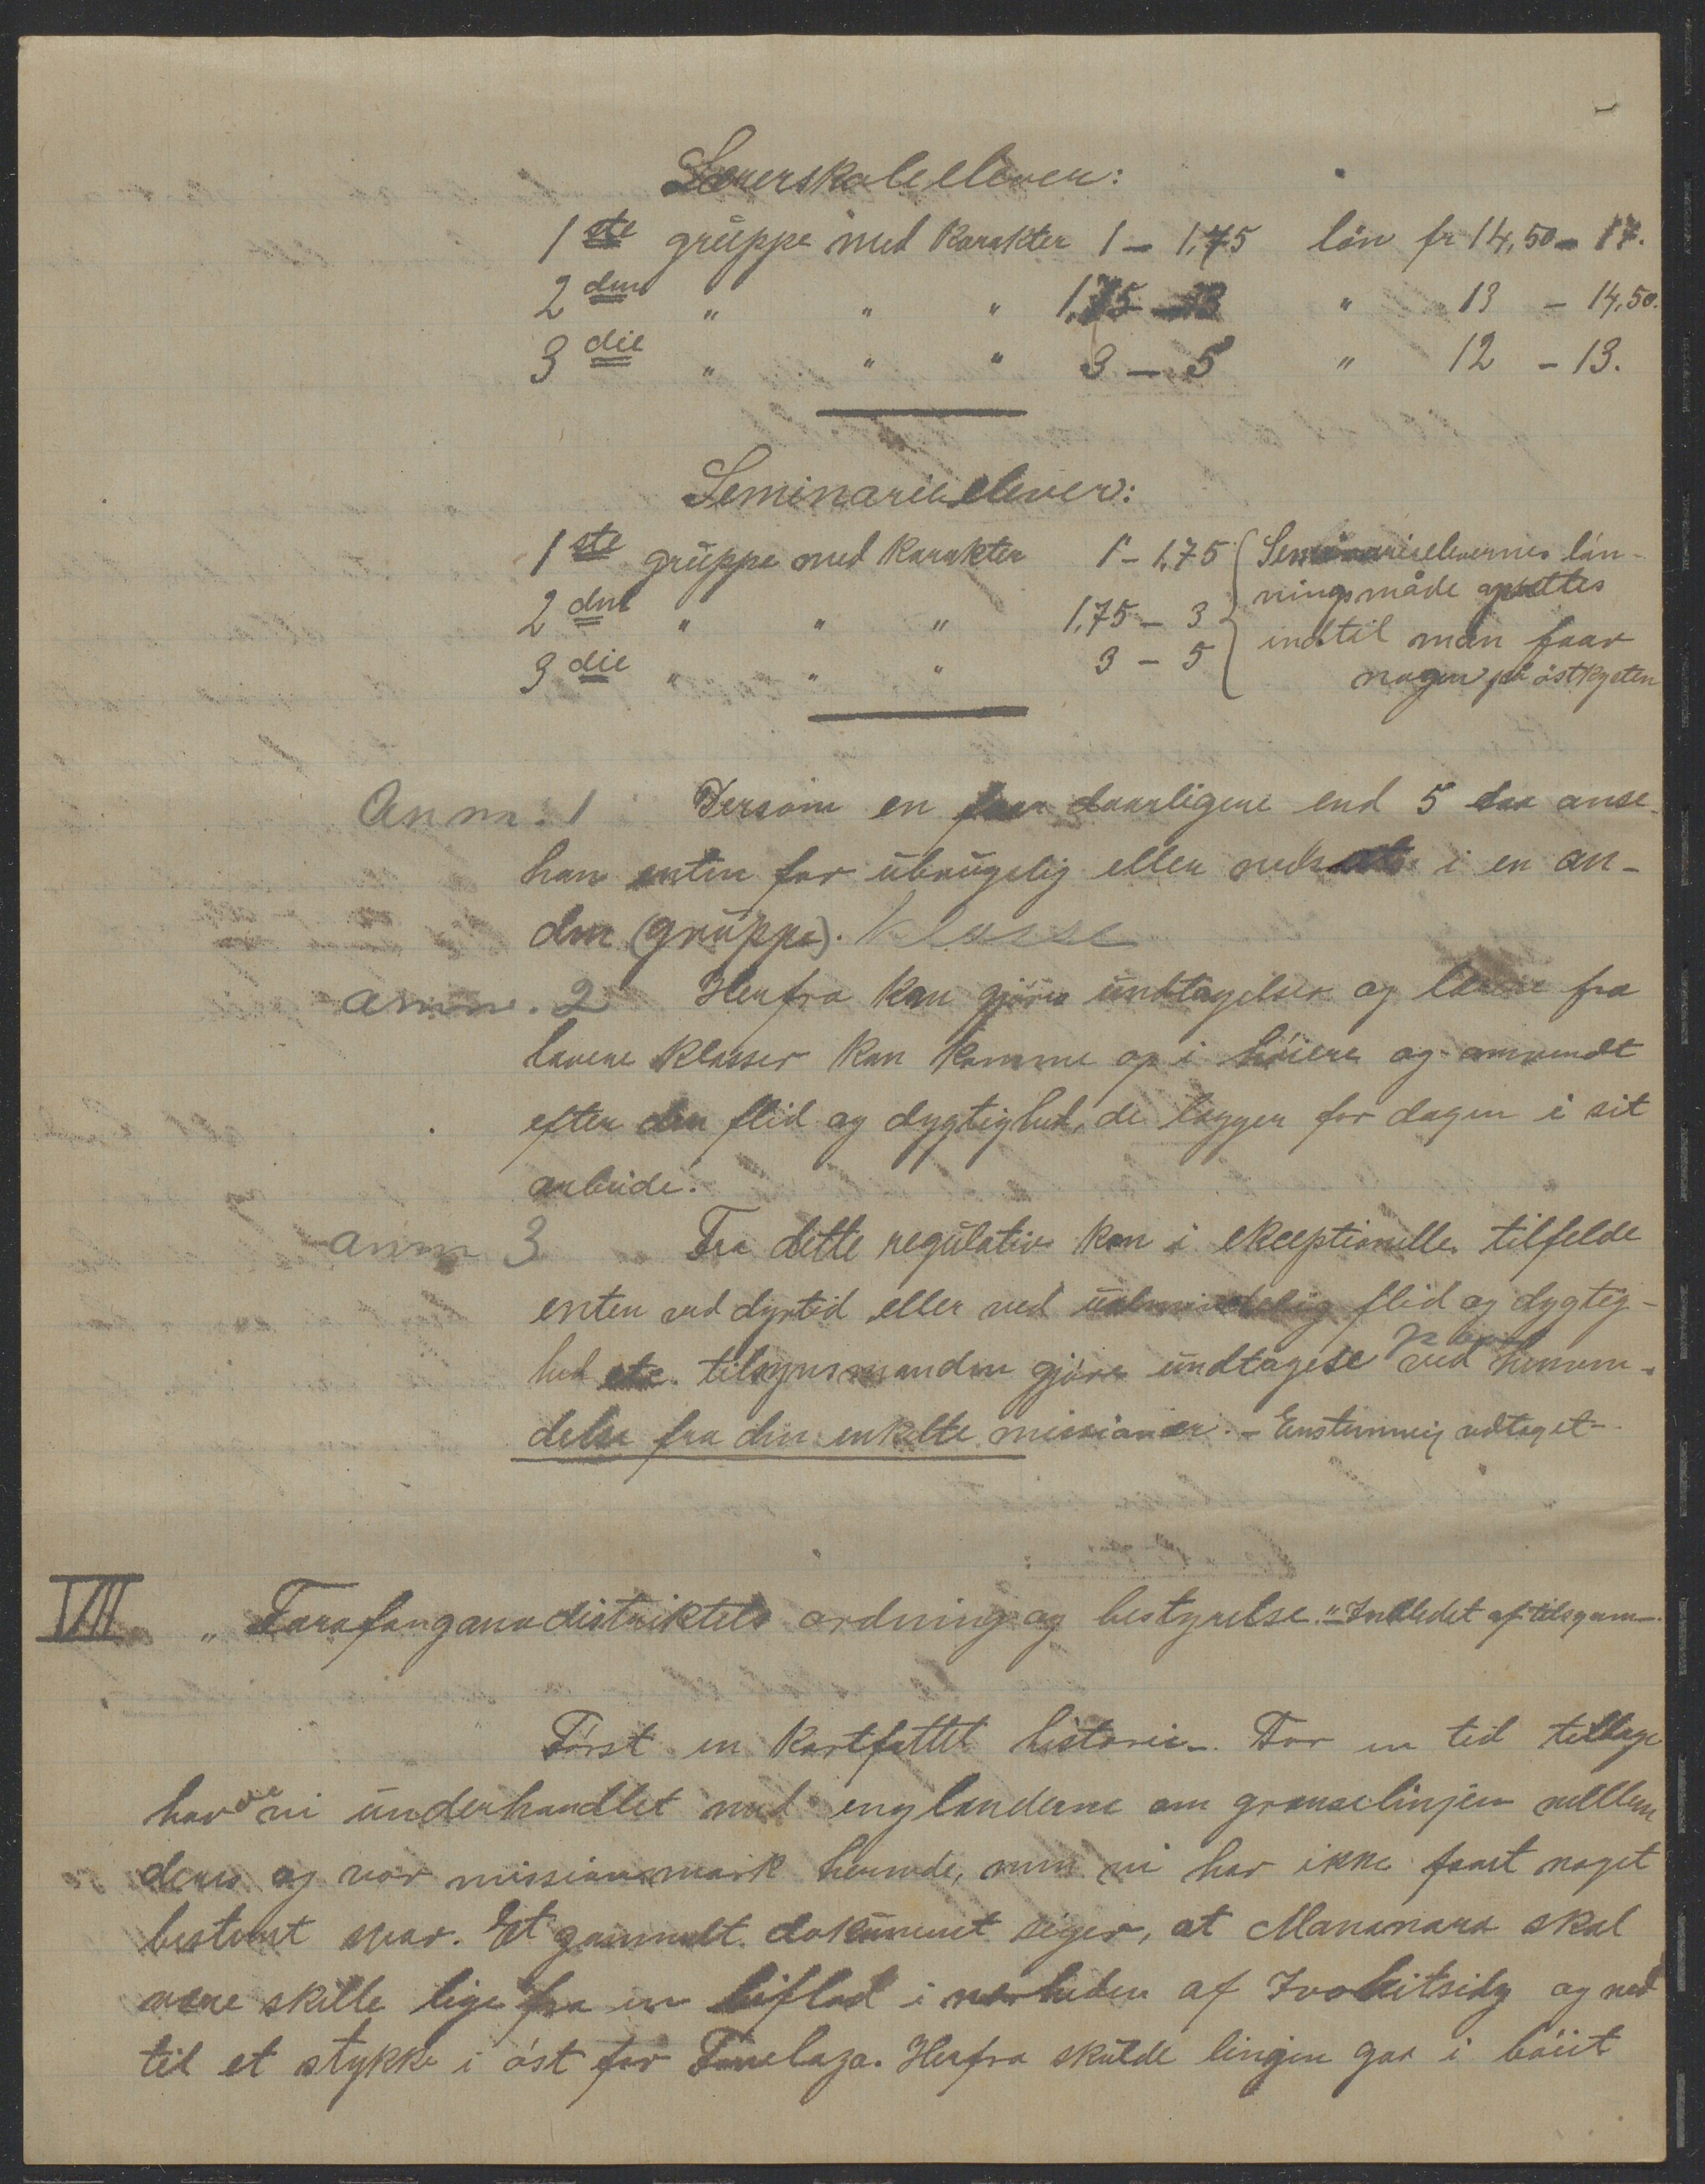 Lærerskoleelever:
1ste gruppe med karakter 1 - 1,75 lön fr 14,50 - 17.
2den " " " 1,75 - 3 " 13 - 14,50.
3die " " " 3 - 5 " 12 - 13.
Seminarieelever:
1ste gruppe med karakter 1 - 1,75 { Seminarieelevernes lön-
ningsmåde opsættes
2den " " " 1,75 - 3
indtil man faar
3die " " " 3 - 5
nogen på östkysten
Anm. 1 Dersom en faar daarligere end 5 anse
ham enten for ubrugelig eller i en an-
den (gruppe). Klasse
anm. 2 Herfra kan gjöres undtagelser og lærere fra
lavere klasser kan komme op i höiere og omvendt
efter den flid og dygtighed, de lægger for dagen i sit
arbeide.
anm 3 Fra dette regulativ kan i ekceptionelle tilfelde
enten ved dyrtid eller ved ualmindelig flid og dygtig-
hed etc. tilsynsmanden gjöre undtagelse ved henven-
delse fra den enkelte missionær. - Enstemmig vedtaget -
VII „Farafanganadistriktets ordning og bestyrelse." - Indledet af tilsynsm.
Först en kortfattet historie. For en tid tilbage
havde vi underhandlet med englænderne om grænselinjen mellem
deres og vor missionsmark hernede, men vi har ikke faaet noget
bestemt svar. Et gammelt dokument siger, at Mananara skal
være skille lige fra en biflod i nærheden af Ivohitsidy og ned
til et stykke i öst for . Herfra skulde linjen gaa i böiet